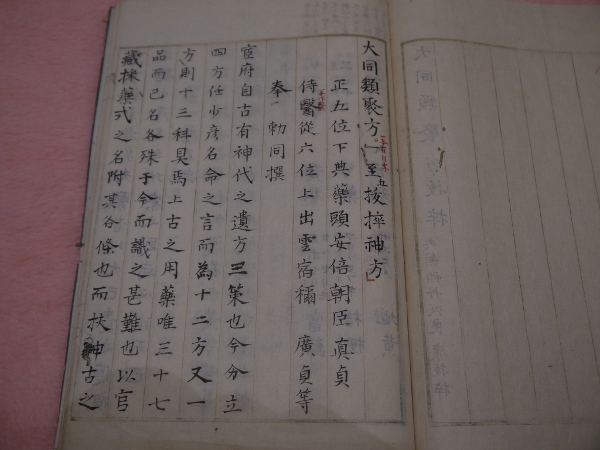 大同類聚方「一至五援擇神方」
正五位下典藥頭安倍朝臣真貞
侍醫從六位上出雲宿禰廣貞等
奉勅同撰
宦府自古有神代之遺方三策也今分立
四方任少彦名命之言而為十二方又一
方則十三科具焉上古之用藥唯三十七
品而已名各殊于今而識之甚難也以官
藏採藥式之名附其各條也而扶神古之